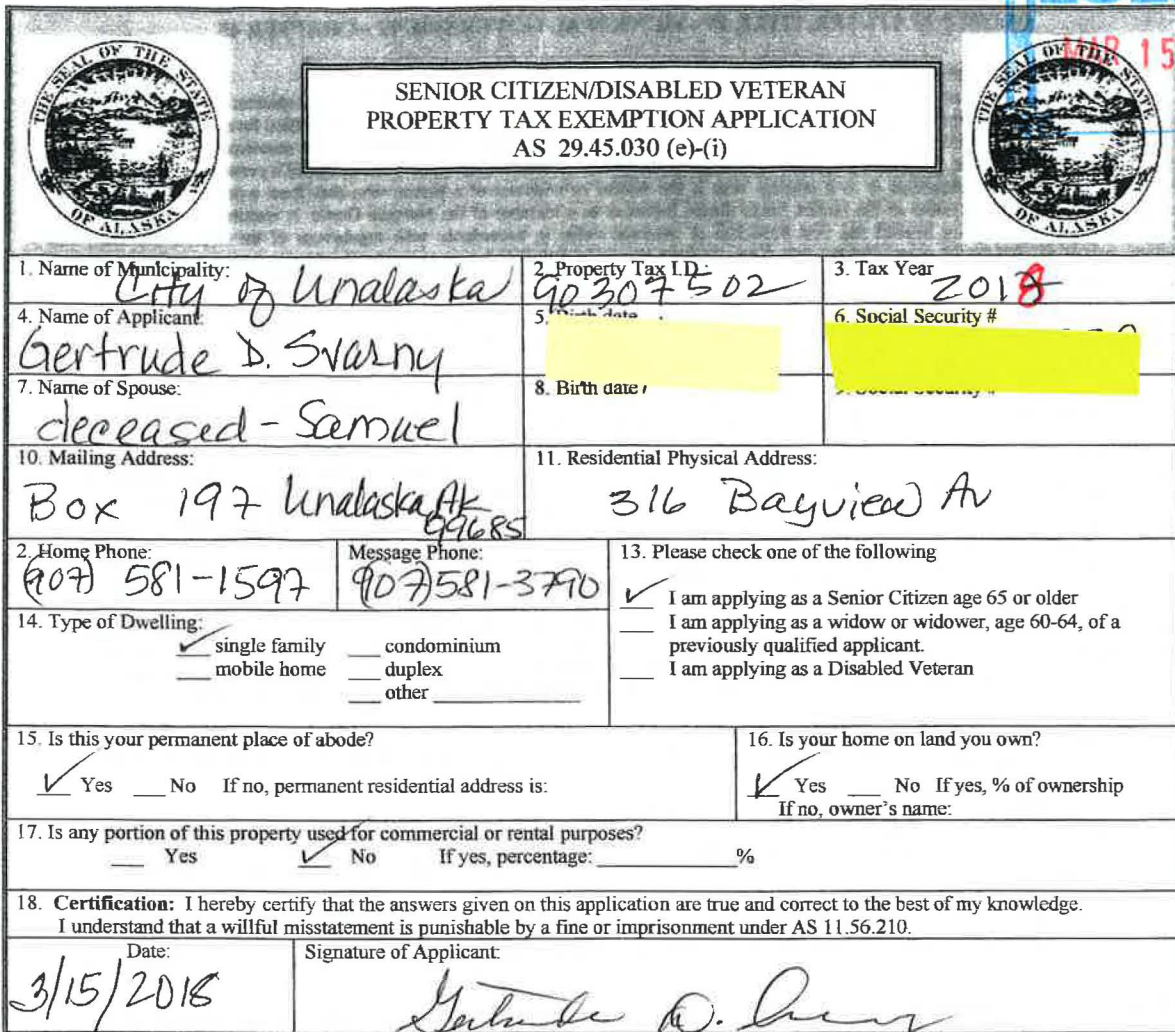 MAR 15
THE SEAL OF THE STATE
OF ALASKA
SENIOR CITIZEN/DISABLED VETERAN
PROPERTY TAX EXEMPTION APPLICATION
AS 29.45.030 (e)-(i)
THE SEAL OF THE STATE
OF ALASKA
1. Name of Municipality: City of Unalaska
2. Property Tax I.D.: 90307502
3. Tax Year 2018
4. Name of Applicant: Gertrude D. Svarny
5. Birth date
6. Social Security #
7. Name of Spouse: deceased - Samuel
8. Birth date
10. Mailing Address: Box 197 Unalaska, AK 99685
11. Residential Physical Address: 316 Bayview Av
2. Home Phone: (907) 581-1597
Message Phone: (907) 581-3790
13. Please check one of the following
✓ I am applying as a Senior Citizen age 65 or older
___ I am applying as a widow or widower, age 60-64, of a
previously qualified applicant.
___ I am applying as a Disabled Veteran
14. Type of Dwelling:
✓ single family ___ condominium
___ mobile home ___ duplex
___ other ___
15. Is this your permanent place of abode?
✓ Yes ___ No If no, permanent residential address is:
16. Is your home on land you own?
✓ Yes ___ No If yes, % of ownership
If no, owner's name:
17. Is any portion of this property used for commercial or rental purposes?
___ Yes ✓ No If yes, percentage: ___%
18. Certification: I hereby certify that the answers given on this application are true and correct to the best of my knowledge.
I understand that a willful misstatement is punishable by a fine or imprisonment under AS 11.56.210.
Date: 3/15/2018
Signature of Applicant: Gertrude D. Svarny